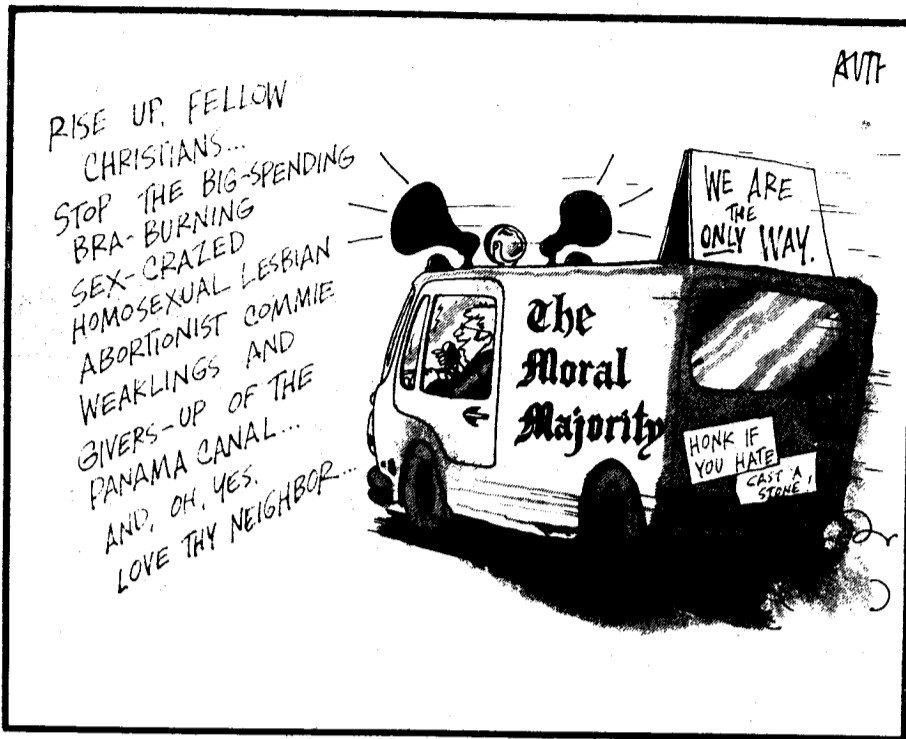 AUTH
RISE UP, FELLOW
CHRISTIANS...
STOP THE BIG-SPENDING
BRA-BURNING
SEX-CRAZED
HOMOSEXUAL LESBIAN
ABORTIONIST COMMIE
WEAKLINGS AND
GIVERS-UP OF THE
PANAMA CANAL...
AND, OH, YES.
LOVE THY NEIGHBOR...
WE ARE
THE
ONLY WAY.
The
Moral
Majority
HONK IF
YOU HATE
CAST A
STONE!